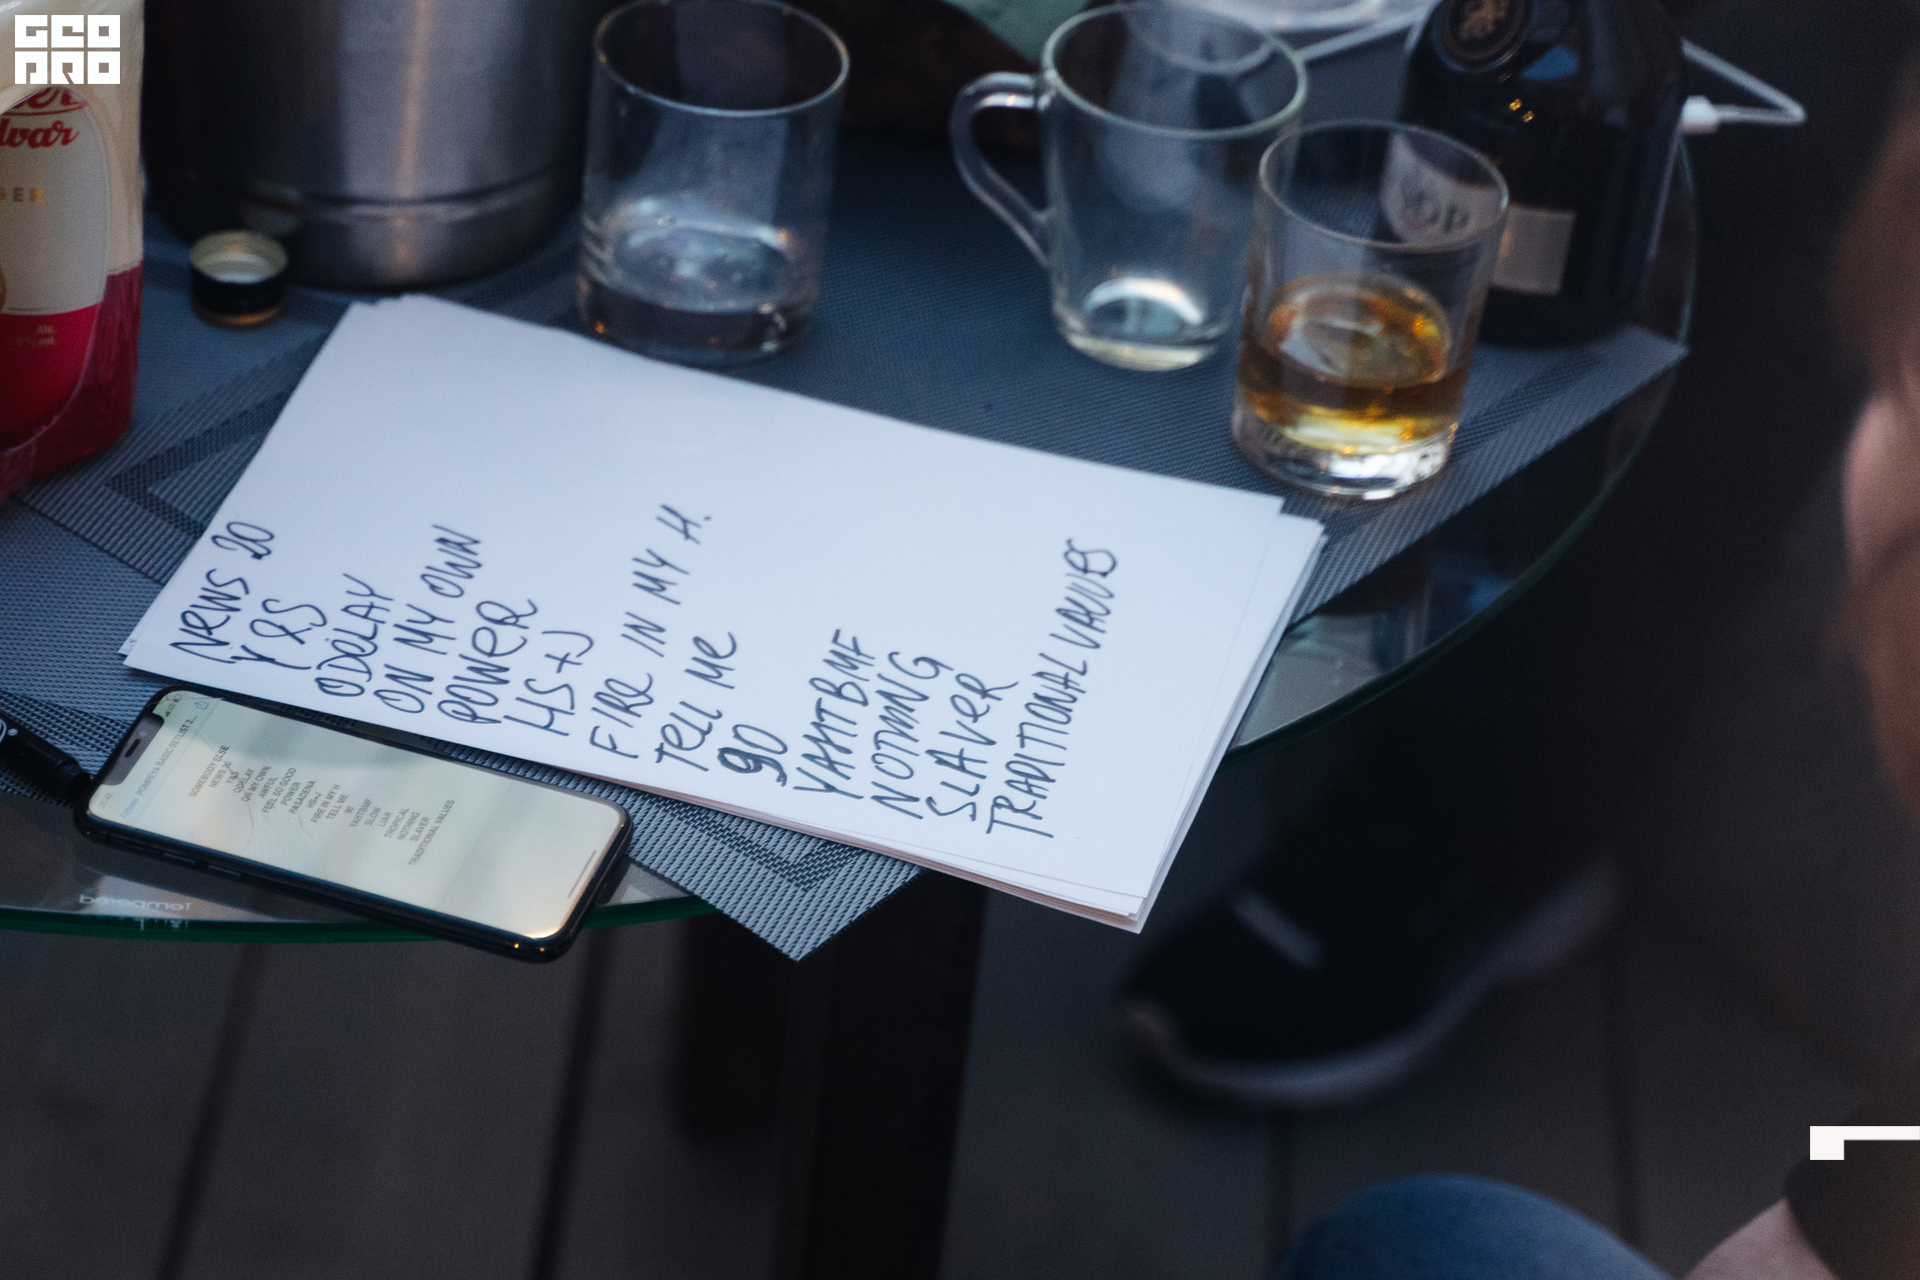 GEO
PRO
lvar
Alc.
VSOP
NEWS 20
Y&S
ODELAY
ON MY OWN
POWER
HS+J
FIRE IN MY H.
TELL ME
90
YAHTBMF
NOTHING
SLAVER
TRADITIONAL VALUES
POMPEYA BASIC SETLIST 2...
SOMEBODY ELSE
NEWS 20
Y&S
ODELAY
ON MY OWN
AWFUL
FEEL SO GOOD
POWER
PASADENA
HS+J
FIRE IN MY H
TELL ME
90
YAHTBMF
SLOW
LIAR
TROPICAL
NOTHING
SLAVER
TRADITIONAL VALUES